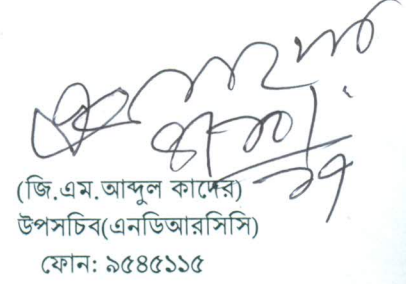 (জি.এম.আব্দুল কাদের)
উপসচিব(এনডিআরসিসি)
ফোন: ৯৫৪৫১১৫